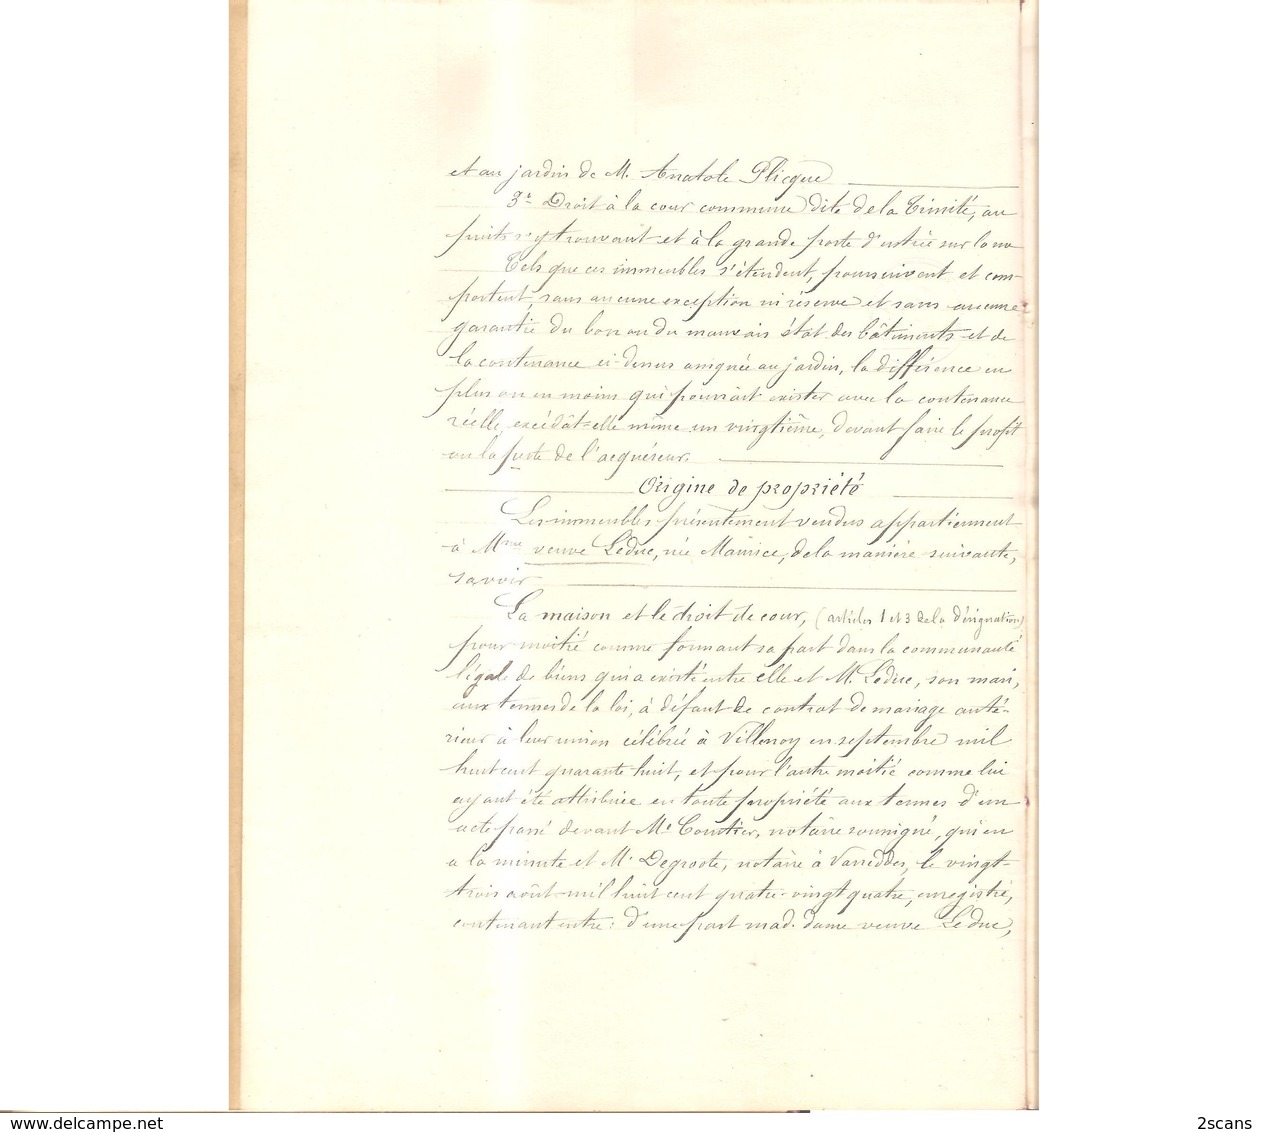 et au jardin de M. Anatole Plicque
3° Droit à la cour commune dite de la Trinité, au
puits s'y trouvant et à la grande porte d'entrée sur la rue
Tels que ces immeubles s'étendent, poursuivent et com-
portent, sans aucune exception ni réserve et sans aucune
garantie du bon ou du mauvais état des bâtiments et de
la contenance ci-dessus assignée au jardin, la différence en
plus ou en moins qui pourrait exister avec la contenance
réelle, excédât-elle même un vingtième, devant faire le profit
ou la perte de l'acquéreur.
Origine de propriété
Les immeubles présentement vendus appartiennent
à Mme veuve Leduc, née Maurice, de la manière suivante,
savoir
La maison et le droit de cour, (articles 1 et 3 de la désignation)
pour moitié comme formant sa part dans la communauté
légale de biens qui a existé entre elle et M. Leduc, son mari,
aux termes de la loi, à défaut de contrat de mariage anté-
rieur à leur union célébrée à Villenoy en septembre mil
huit cent quarante huit, et pour l'autre moitié comme lui
ayant été attribuée en toute propriété aux termes d'un
acte passé devant Me Coutier, notaire soussigné, qui en
a la minute et Me Degroote, notaire à Varreddes, le vingt-
trois août mil huit cent quatre-vingt quatre, enregistré,
contenant entre : d'une part mad. dame veuve Leduc,
2scans